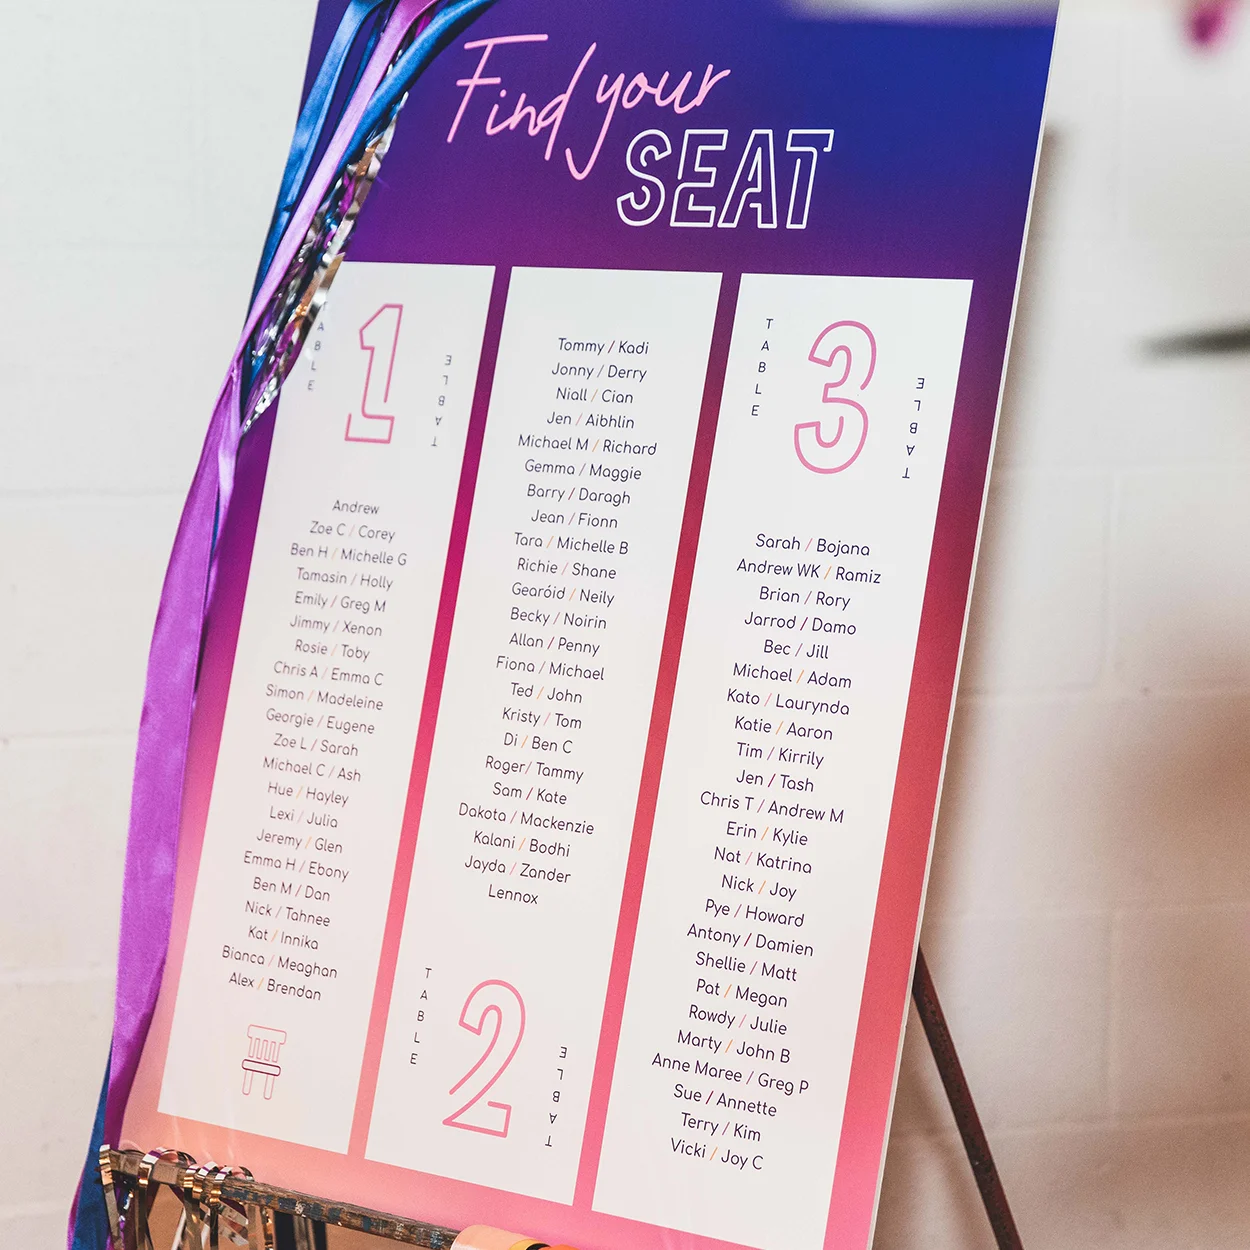 Find your
SEAT
TABLE
1
TABLE
Andrew
Zoe C / Corey
Ben H / Michelle G
Tamasin / Holly
Emily / Greg M
Jimmy / Xenon
Rosie / Toby
Chris A / Emma C
Simon / Madeleine
Georgie / Eugene
Zoe L / Sarah
Michael C / Ash
Hue / Hayley
Lexi / Julia
Jeremy / Glen
Emma H / Ebony
Ben M / Dan
Nick / Tahnee
Kat / Innika
Bianca / Meaghan
Alex / Brendan
Tommy / Kadi
Jonny / Derry
Niall / Cian
Jen / Aibhlin
Michael M / Richard
Gemma / Maggie
Barry / Daragh
Jean / Fionn
Tara / Michelle B
Richie / Shane
Gearóid / Neily
Becky / Noirin
Allan / Penny
Fiona / Michael
Ted / John
Kristy / Tom
Di / Ben C
Roger/ Tammy
Sam / Kate
Dakota / Mackenzie
Kalani / Bodhi
Jayda / Zander
Lennox
TABLE
2
TABLE
TABLE
3
TABLE
Sarah / Bojana
Andrew WK / Ramiz
Brian / Rory
Jarrod / Damo
Bec / Jill
Michael / Adam
Kato / Laurynda
Katie / Aaron
Tim / Kirrily
Jen / Tash
Chris T / Andrew M
Erin / Kylie
Nat / Katrina
Nick / Joy
Pye / Howard
Antony / Damien
Shellie / Matt
Pat / Megan
Rowdy / Julie
Marty / John B
Anne Maree / Greg P
Sue / Annette
Terry / Kim
Vicki / Joy C